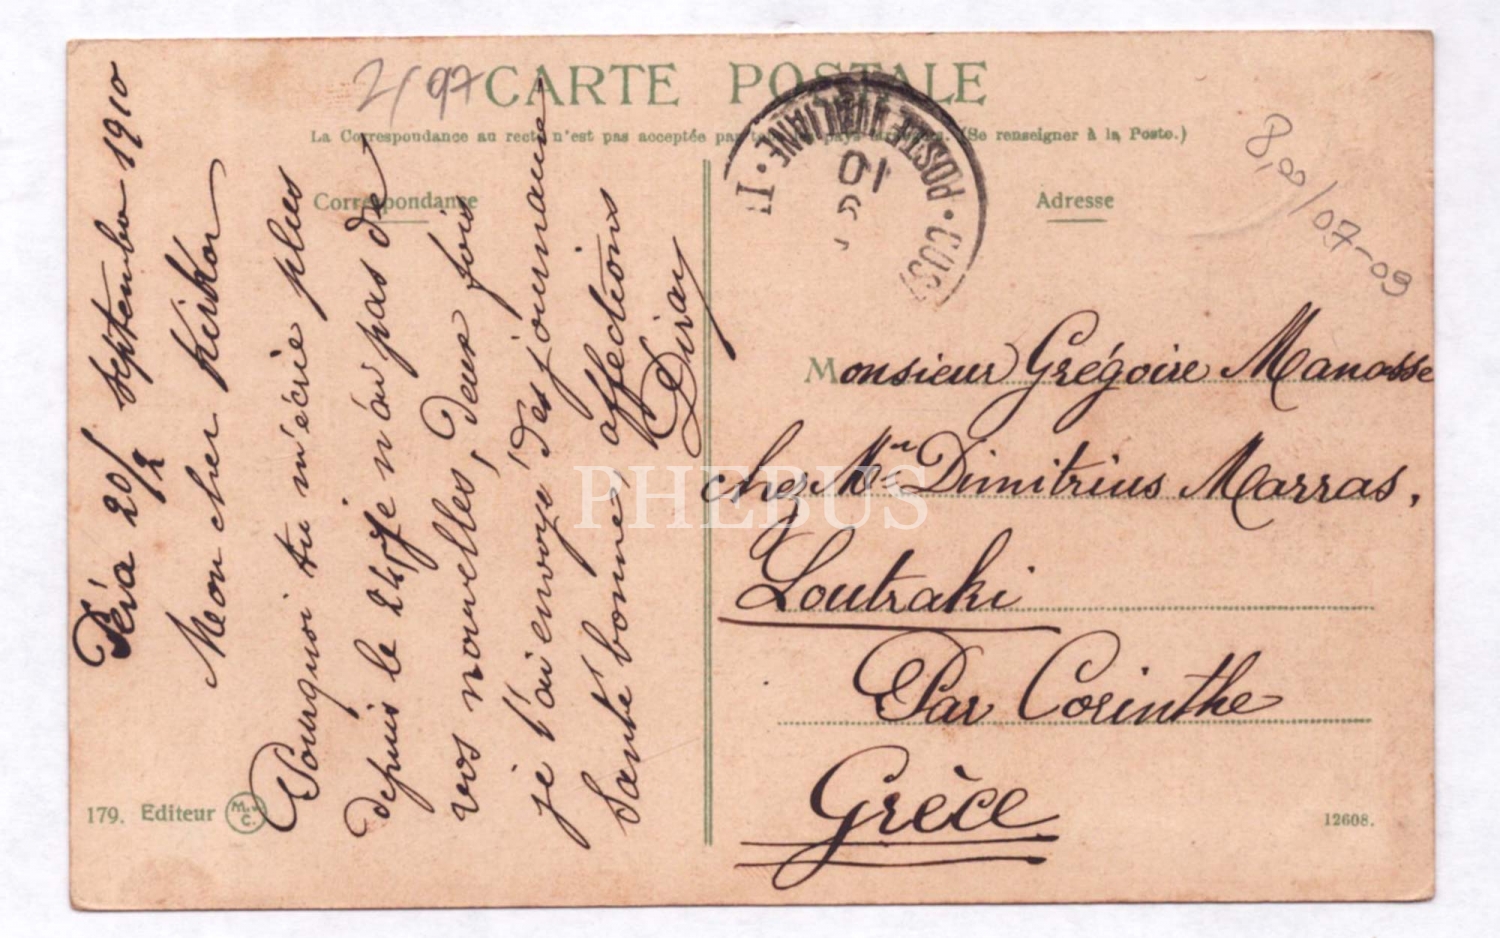 CARTE POSTALE
La Correspondance au recto n'est pas acceptée par tous les pays étrangers. (Se renseigner à la Poste.)
Correspondance
Adresse
Péra 20/ 2 septembre 1910
Mon cher Kirkor
Pourquoi tu m'écrie plus
depuis le 24 je n'ai pas de
vos nouvelles, deux fois
je t'ai envoyé des journaux
Santé bonne, affections
Diran
POSTE
Monsieur Grégoire Manasse
chez Mr. Dimitrius Marras,
Loutraki
Par Corinthe
Grèce
179. Editeur M.J.C.
12608.
8,00/07-09
PHEBUS